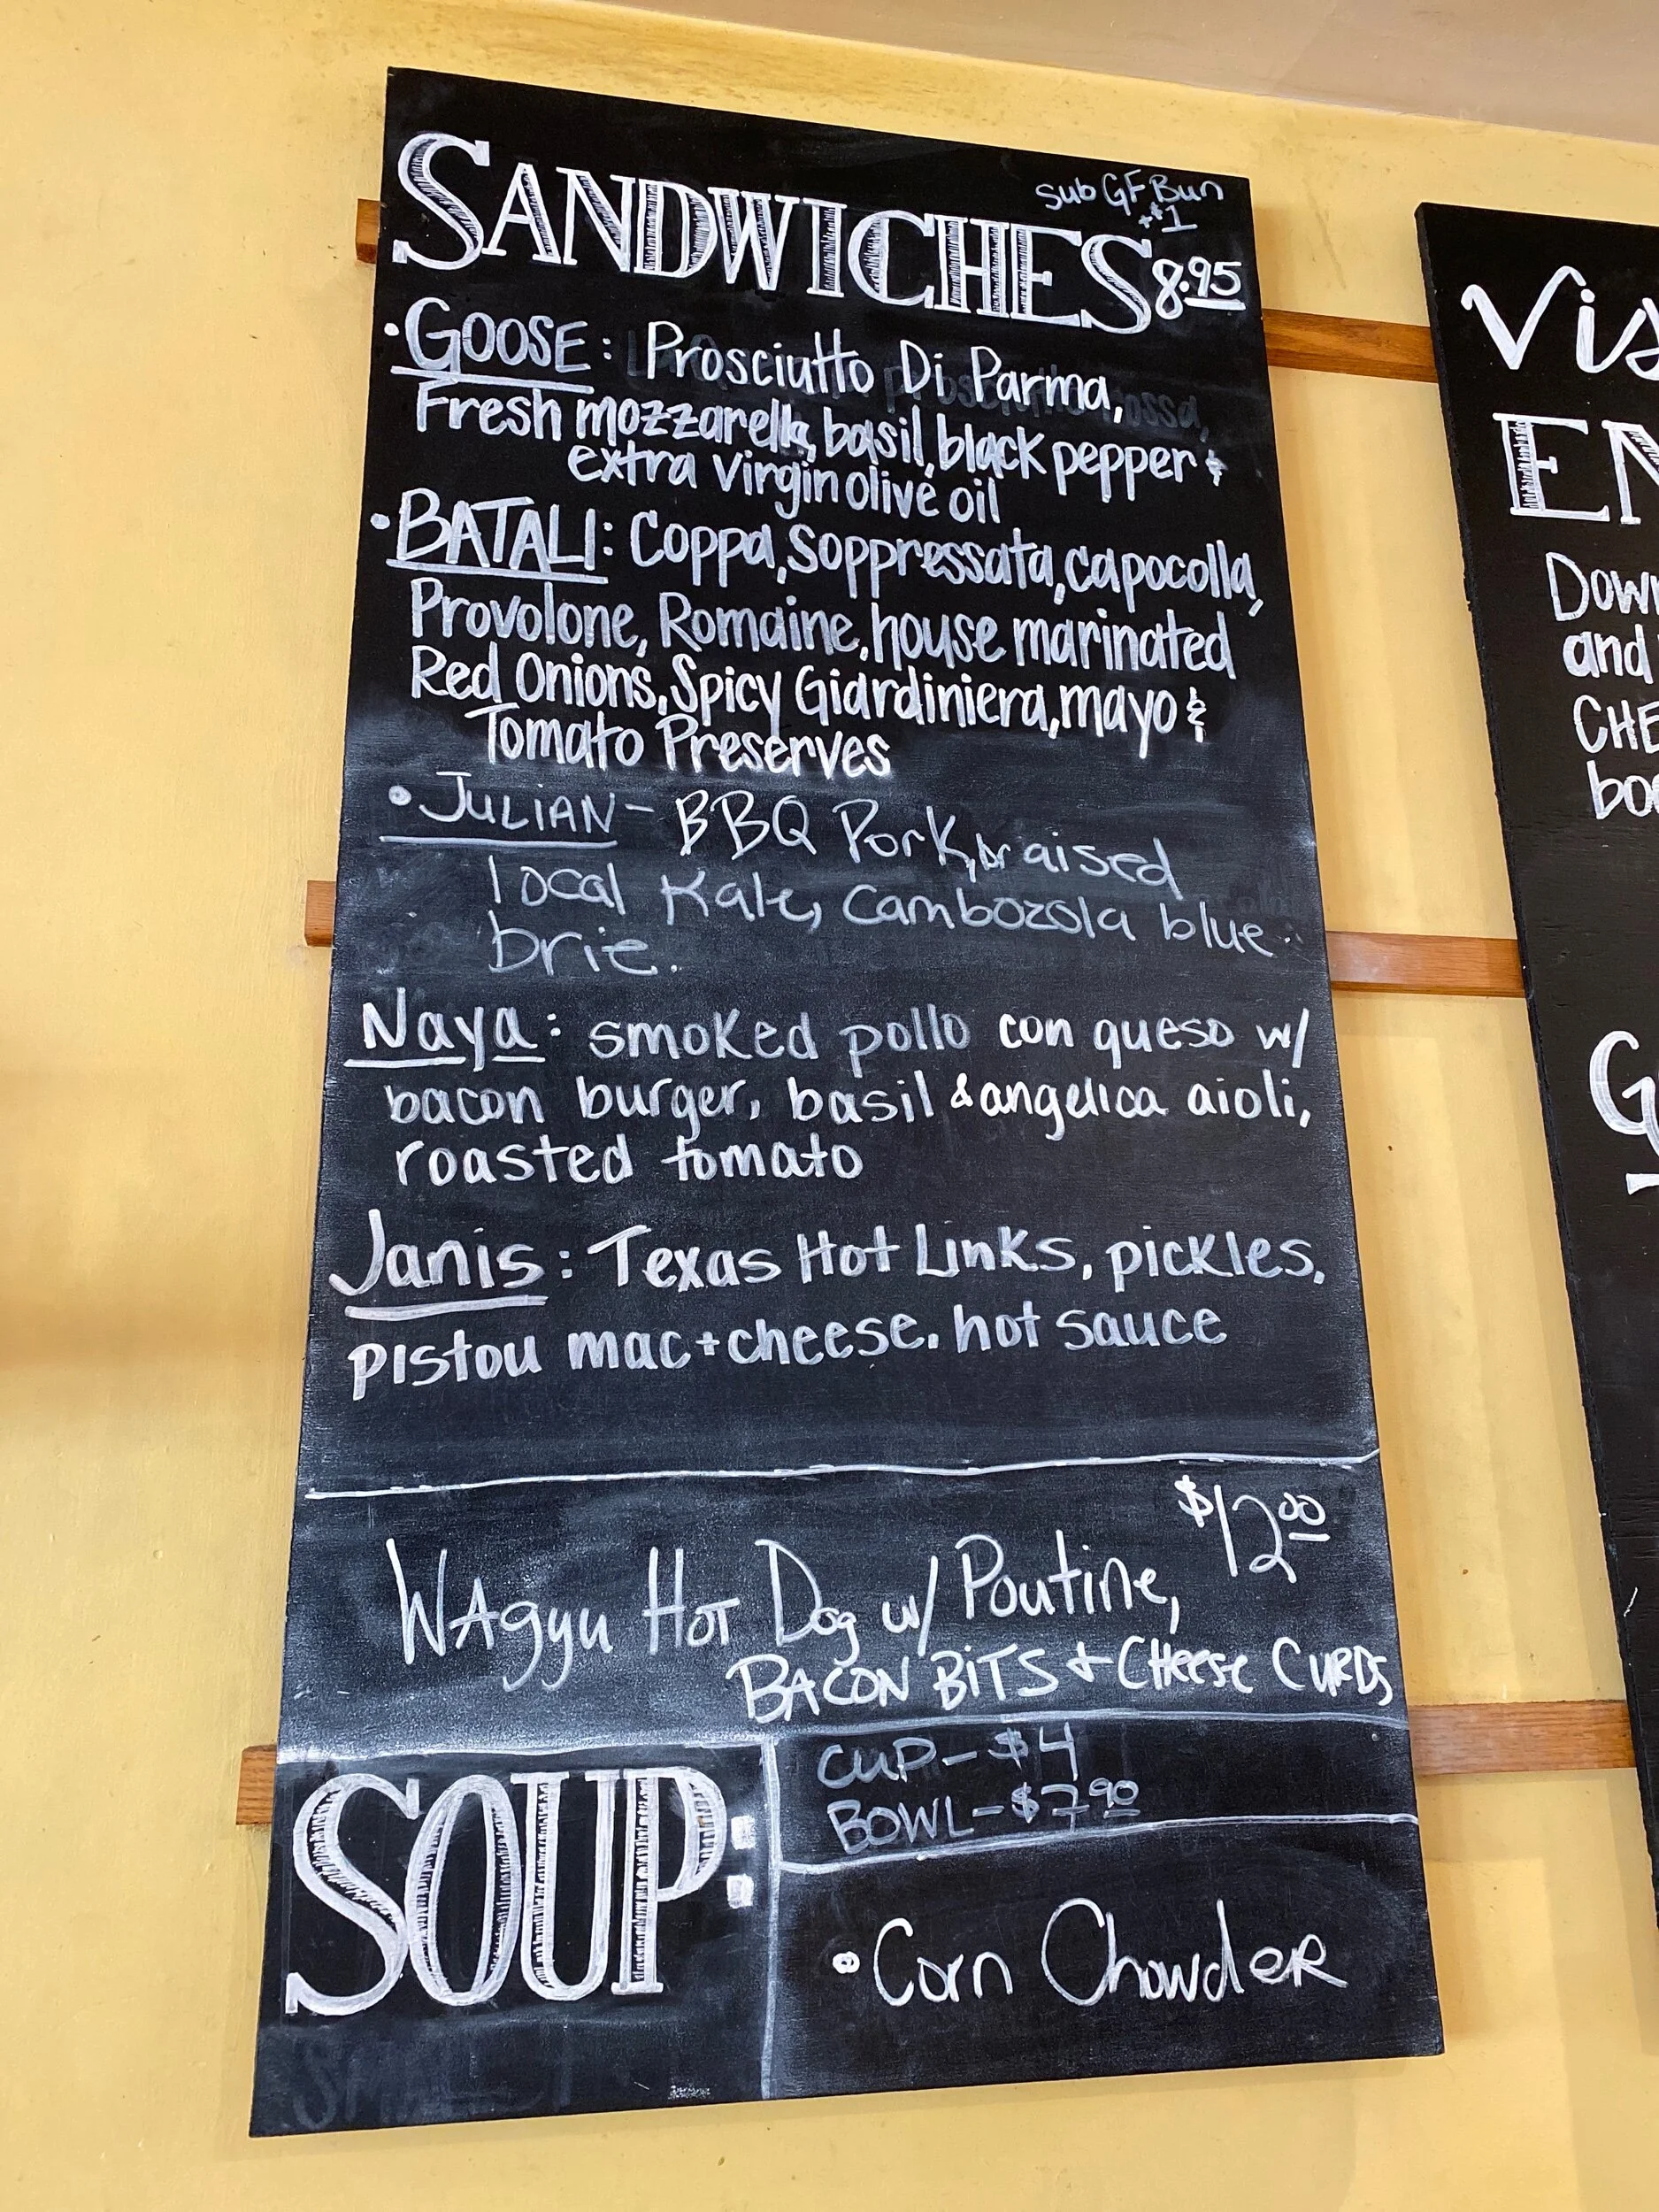 sub GF Bun
+$1
SANDWICHES 8.95
• GOOSE: Prosciutto Di Parma,
Fresh mozzarella, basil, black pepper &
extra virgin olive oil
• BATALI: Coppa, Soppressata, capocolla,
Provolone, Romaine, house marinated
Red Onions, Spicy Giardiniera, mayo &
Tomato Preserves
• JULIAN - BBQ Pork, braised
local Kale, Cambozola blue
brie.
Naya: smoked pollo con queso w/
bacon burger, basil & angelica aioli,
roasted tomato
Janis: Texas Hot Links, pickles,
pistou mac+cheese, hot sauce
$12.00
WAgyu HOT Dog w/ Poutine,
BACON BITS + CHeese CURDS
SOUP:
CUP - $4
BOWL - $7.90
• Corn ChowdeR
Vis
EN
Down
and
CHE
boo
G